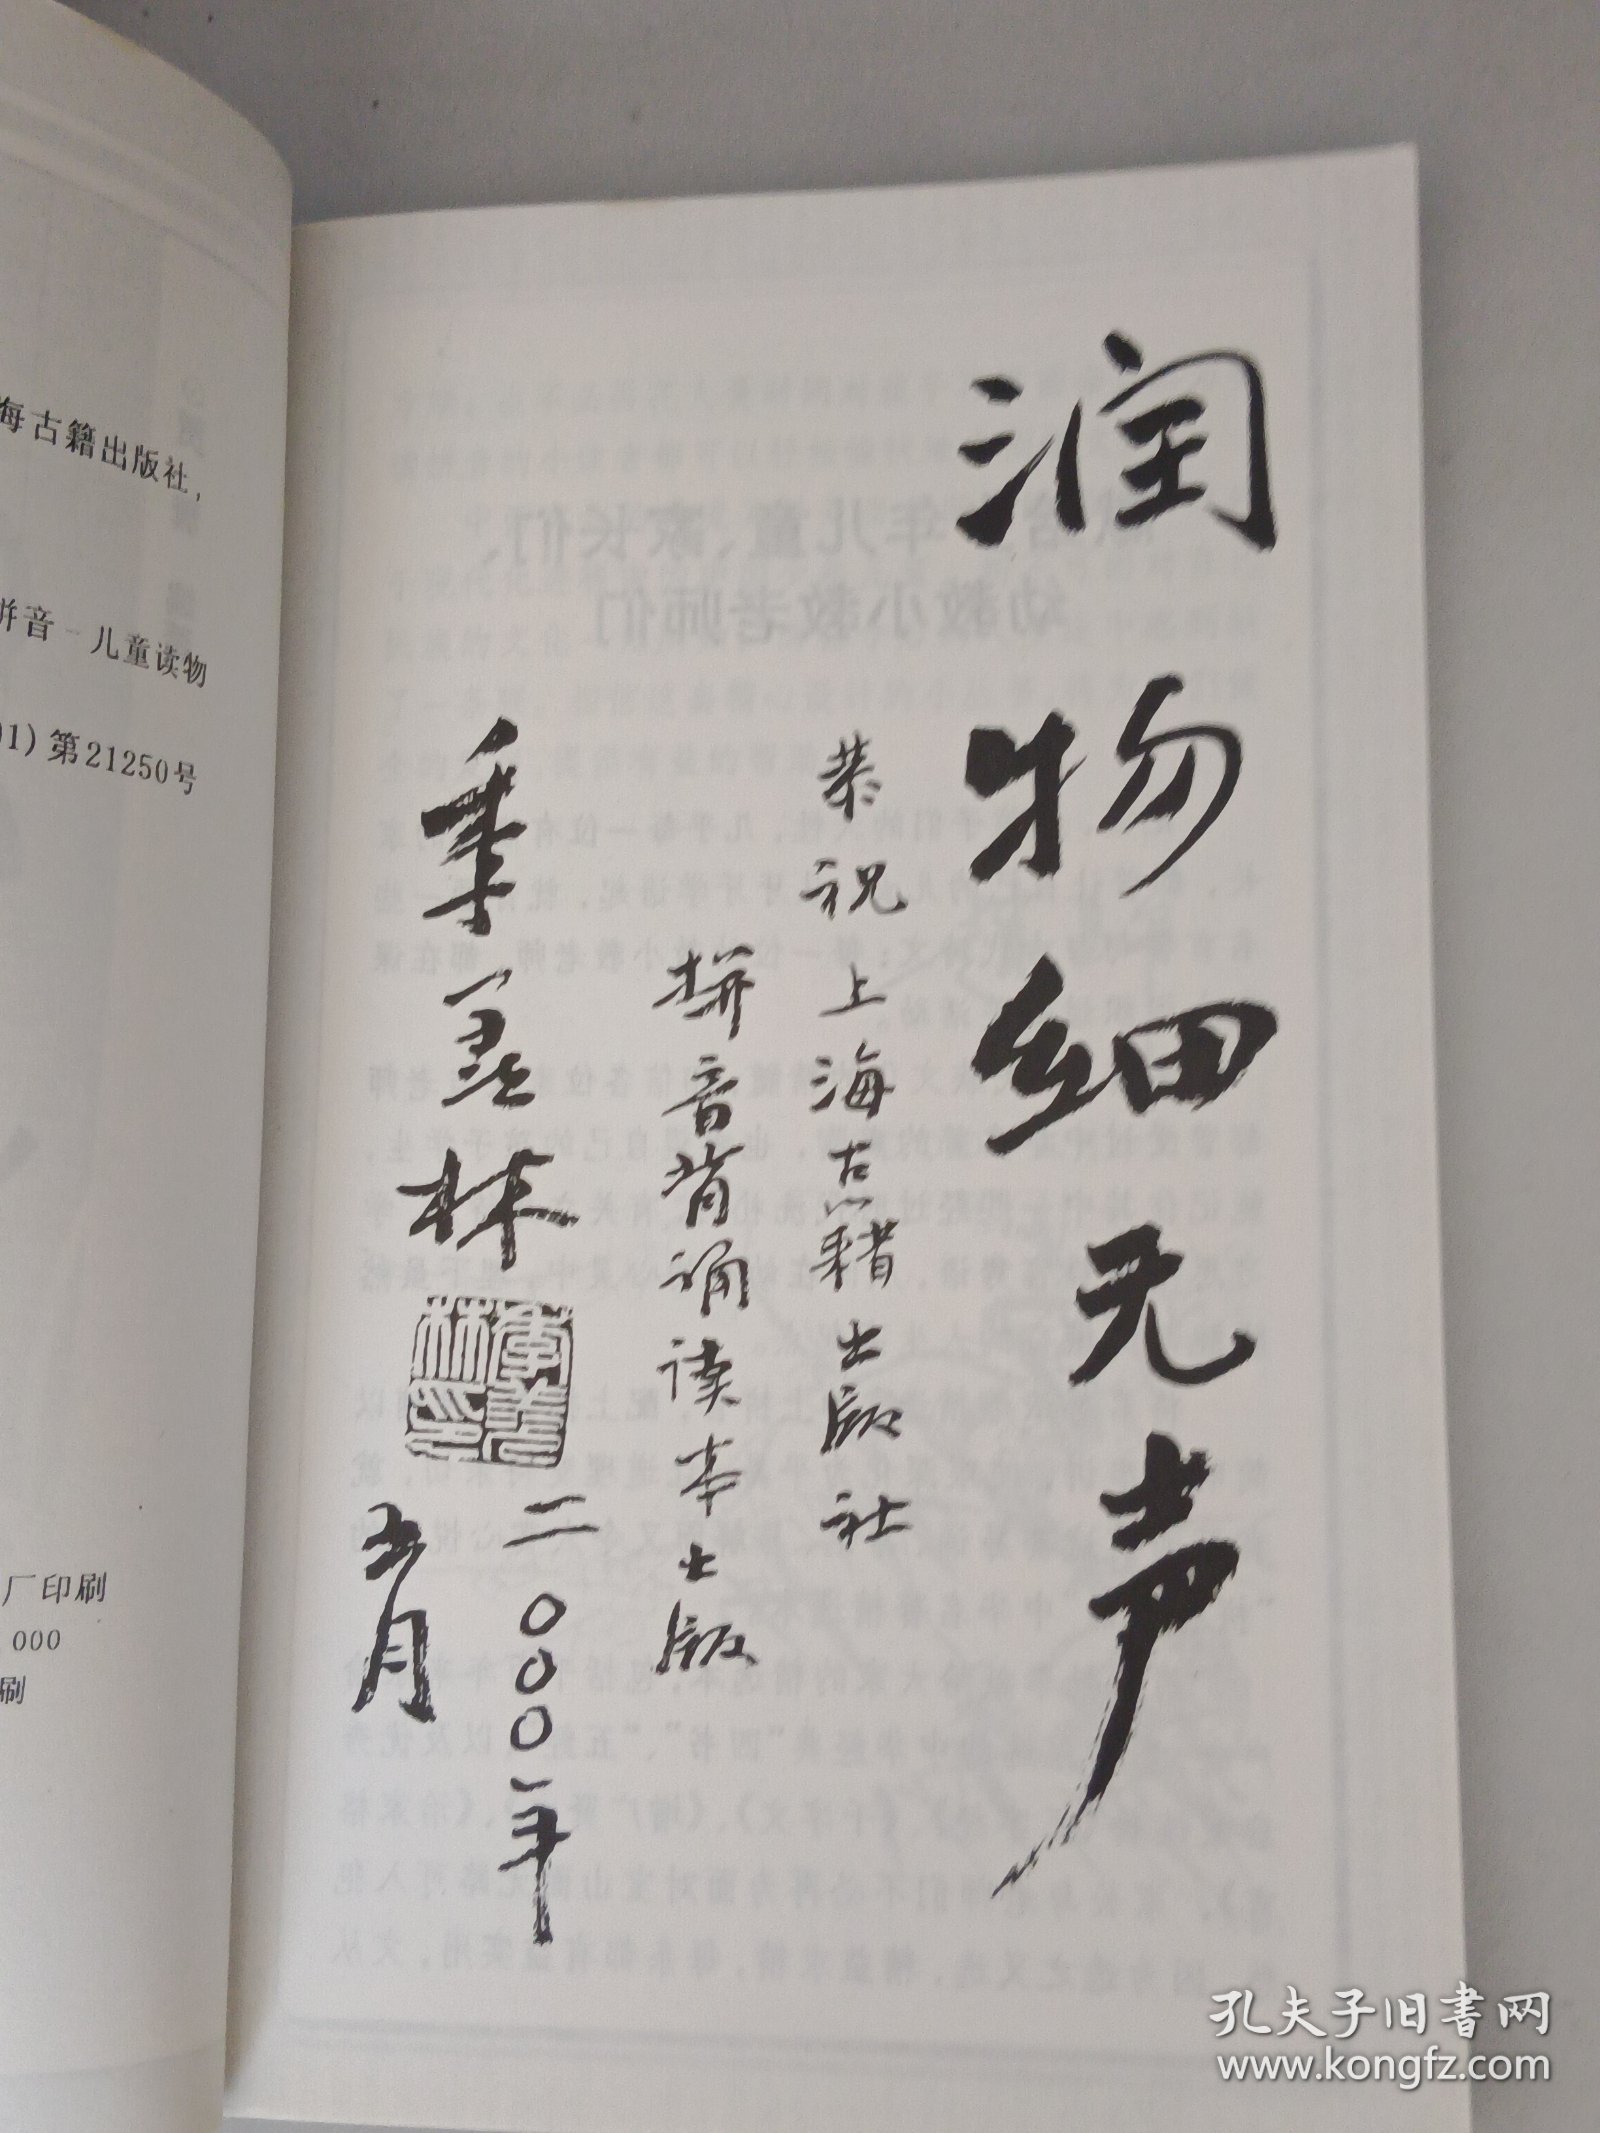 海古籍出版社,
拼音-儿童读物
01) 第21250号
厂印刷
000
刷
润物细无声
恭祝上海古籍出版社
拼音背诵读本出版
季羡林
季羡林印
二〇〇〇年
五月
孔夫子旧书网
www.kongfz.com